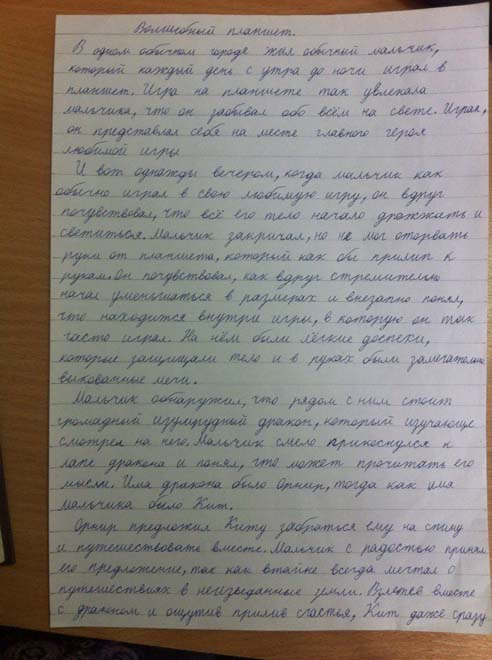 Волшебный планшет.
В одном обычном городе жил обычный мальчик,
который каждый день с утра до ночи играл в
планшет. Игра на планшете так увлекала
мальчика, что он забывал обо всём на свете. Играя,
он представлял себя на месте главного героя
любимой игры
И вот однажды вечером, когда мальчик как
обычно играл в свою любимую игру, он вдруг
почувствовал, что всё его тело начало дрожжать и
светиться. Мальчик закричал, но не мог оторвать
руки от планшета, который как бы прилип к
рукам. Он почувствовал, как вдруг стремительно
начал уменьшаться в размерах и внезапно понял,
что находится внутри игры, в которую он так
часто играл. На нём были лёгкие доспехи,
которые защищали тело и в руках были замечательно
выкованные мечи.
Мальчик обнаружил, что рядом с ним стоит
громадный изумрудный дракон, который изучающе
смотрел на него. Мальчик смело прикоснулся к
лапе дракона и понял, что может прочитать его
мысли. Имя дракона было Орнир, тогда как имя
мальчика было Кит.
Орнир предложил Киту забраться ему на спину
и путешествовать вместе. Мальчик с радостью принял
его предложение, так как втайне всегда мечтал о
путешествиях в неизведанные земли. Взлетев вместе
с драконом и ощутив прилив счастья, Кит даже сразу